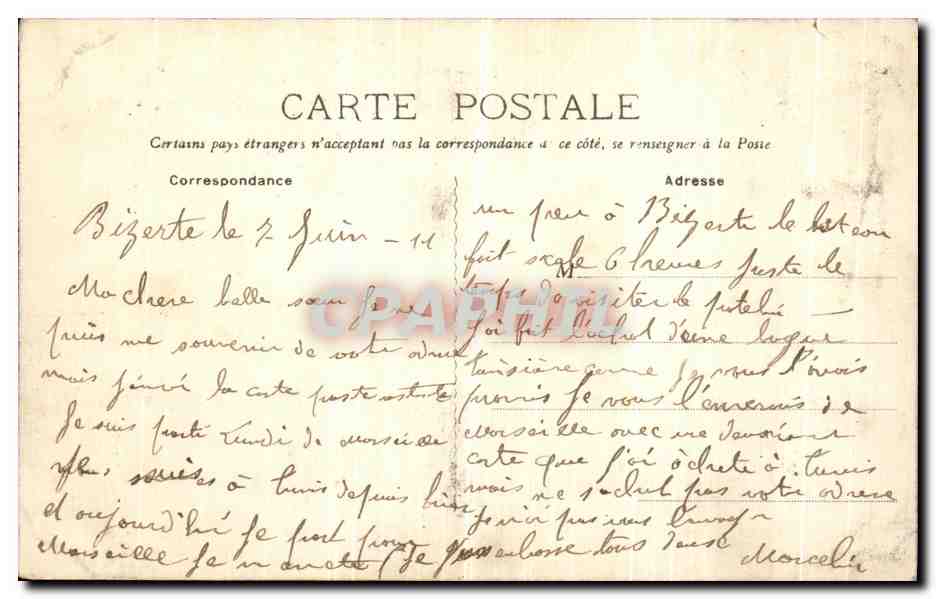 CARTE POSTALE
Certains pays étrangers n'acceptant pas la correspondance à ce côté, se renseigner à la Poste
Correspondance
Adresse
Bizerte le 7 Juin - 11
Ma chere belle sœur Je ne
puis me souvenir de votre
mais la carte poste
Je suis parti Lundi de Marseille
suis à tunis depuis hier
et aujourd'hui je part pour
Marseille Je m arrete
un peu à Bizerte le bateau
fait 6 heures juste le
temps de visiter le patelin
J'ai fait l'achat d'une bague
tunisiènne comme je vous l'avais
promis Je vous l'enverrais de
Marseille avec une deuxieme
carte que j'ai acheté à tunis
mais ne sachant pas votre adrese
Je n'ai pas vous
Je embrasse tous deux
Marcelin
CPARHIL